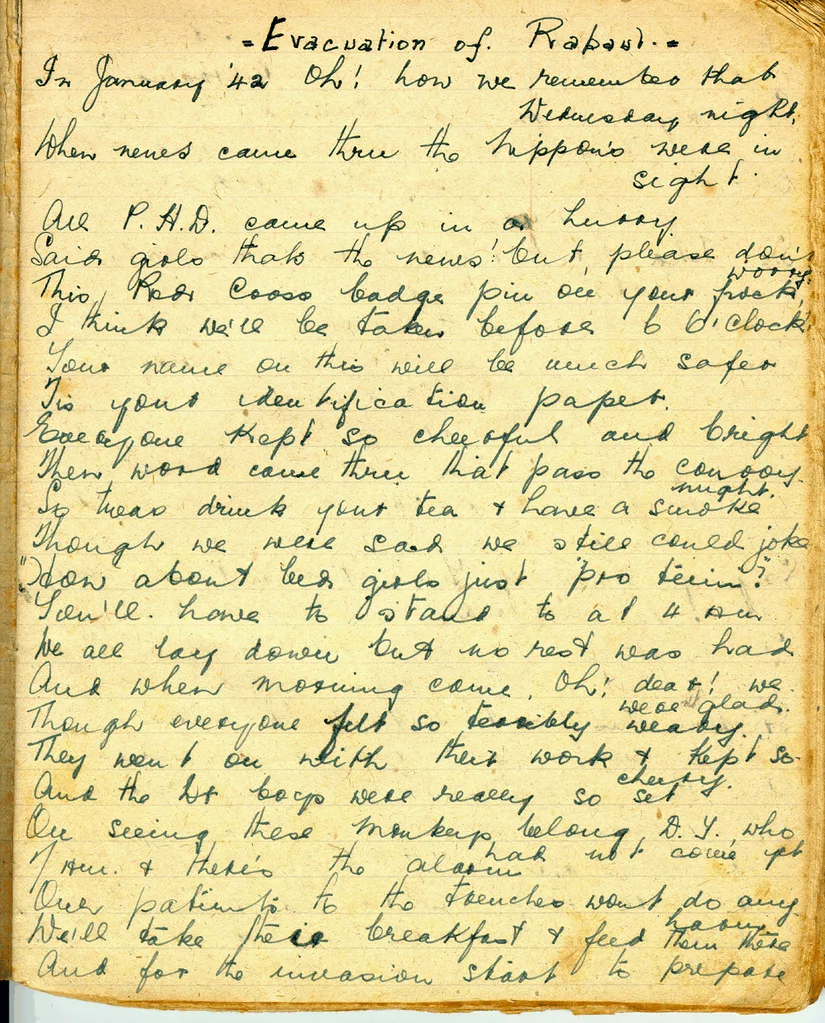 = Evacuation of Rabaul. =
In January '42 Oh! how we remember that
Wednesday night,
When news came thru the Nippon's were in
sight.
All P.H.D. came up in a hurry
Said girls thats the news! but please don't
worry.
This Red Cross badge pin on your frock,
I think we'll be taken before 6 O'Clock.
Your name on this will be much safer
Tis your identification paper.
Everyone kept so cheerful and bright
Then word came thru that pass the convoy
might.
So twas drink your tea & have a smoke
Though we were sad we still could joke
"How about bed girls just "pro tem"?
You'll have to stand to at 4 AM
We all lay down but no rest was had
And when morning came, Oh! dear! we
were glad.
Though everyone felt so terribly weary.
They went on with their work & kept so
cheery.
And the boys were really so set
On seeing these monkeys belong D.Y. who
had not come yet
7 AM. & there's the alarm
Our patients to the trenches wont do any
harm
We'll take their breakfast & feed them there
And for the invasion start to prepare